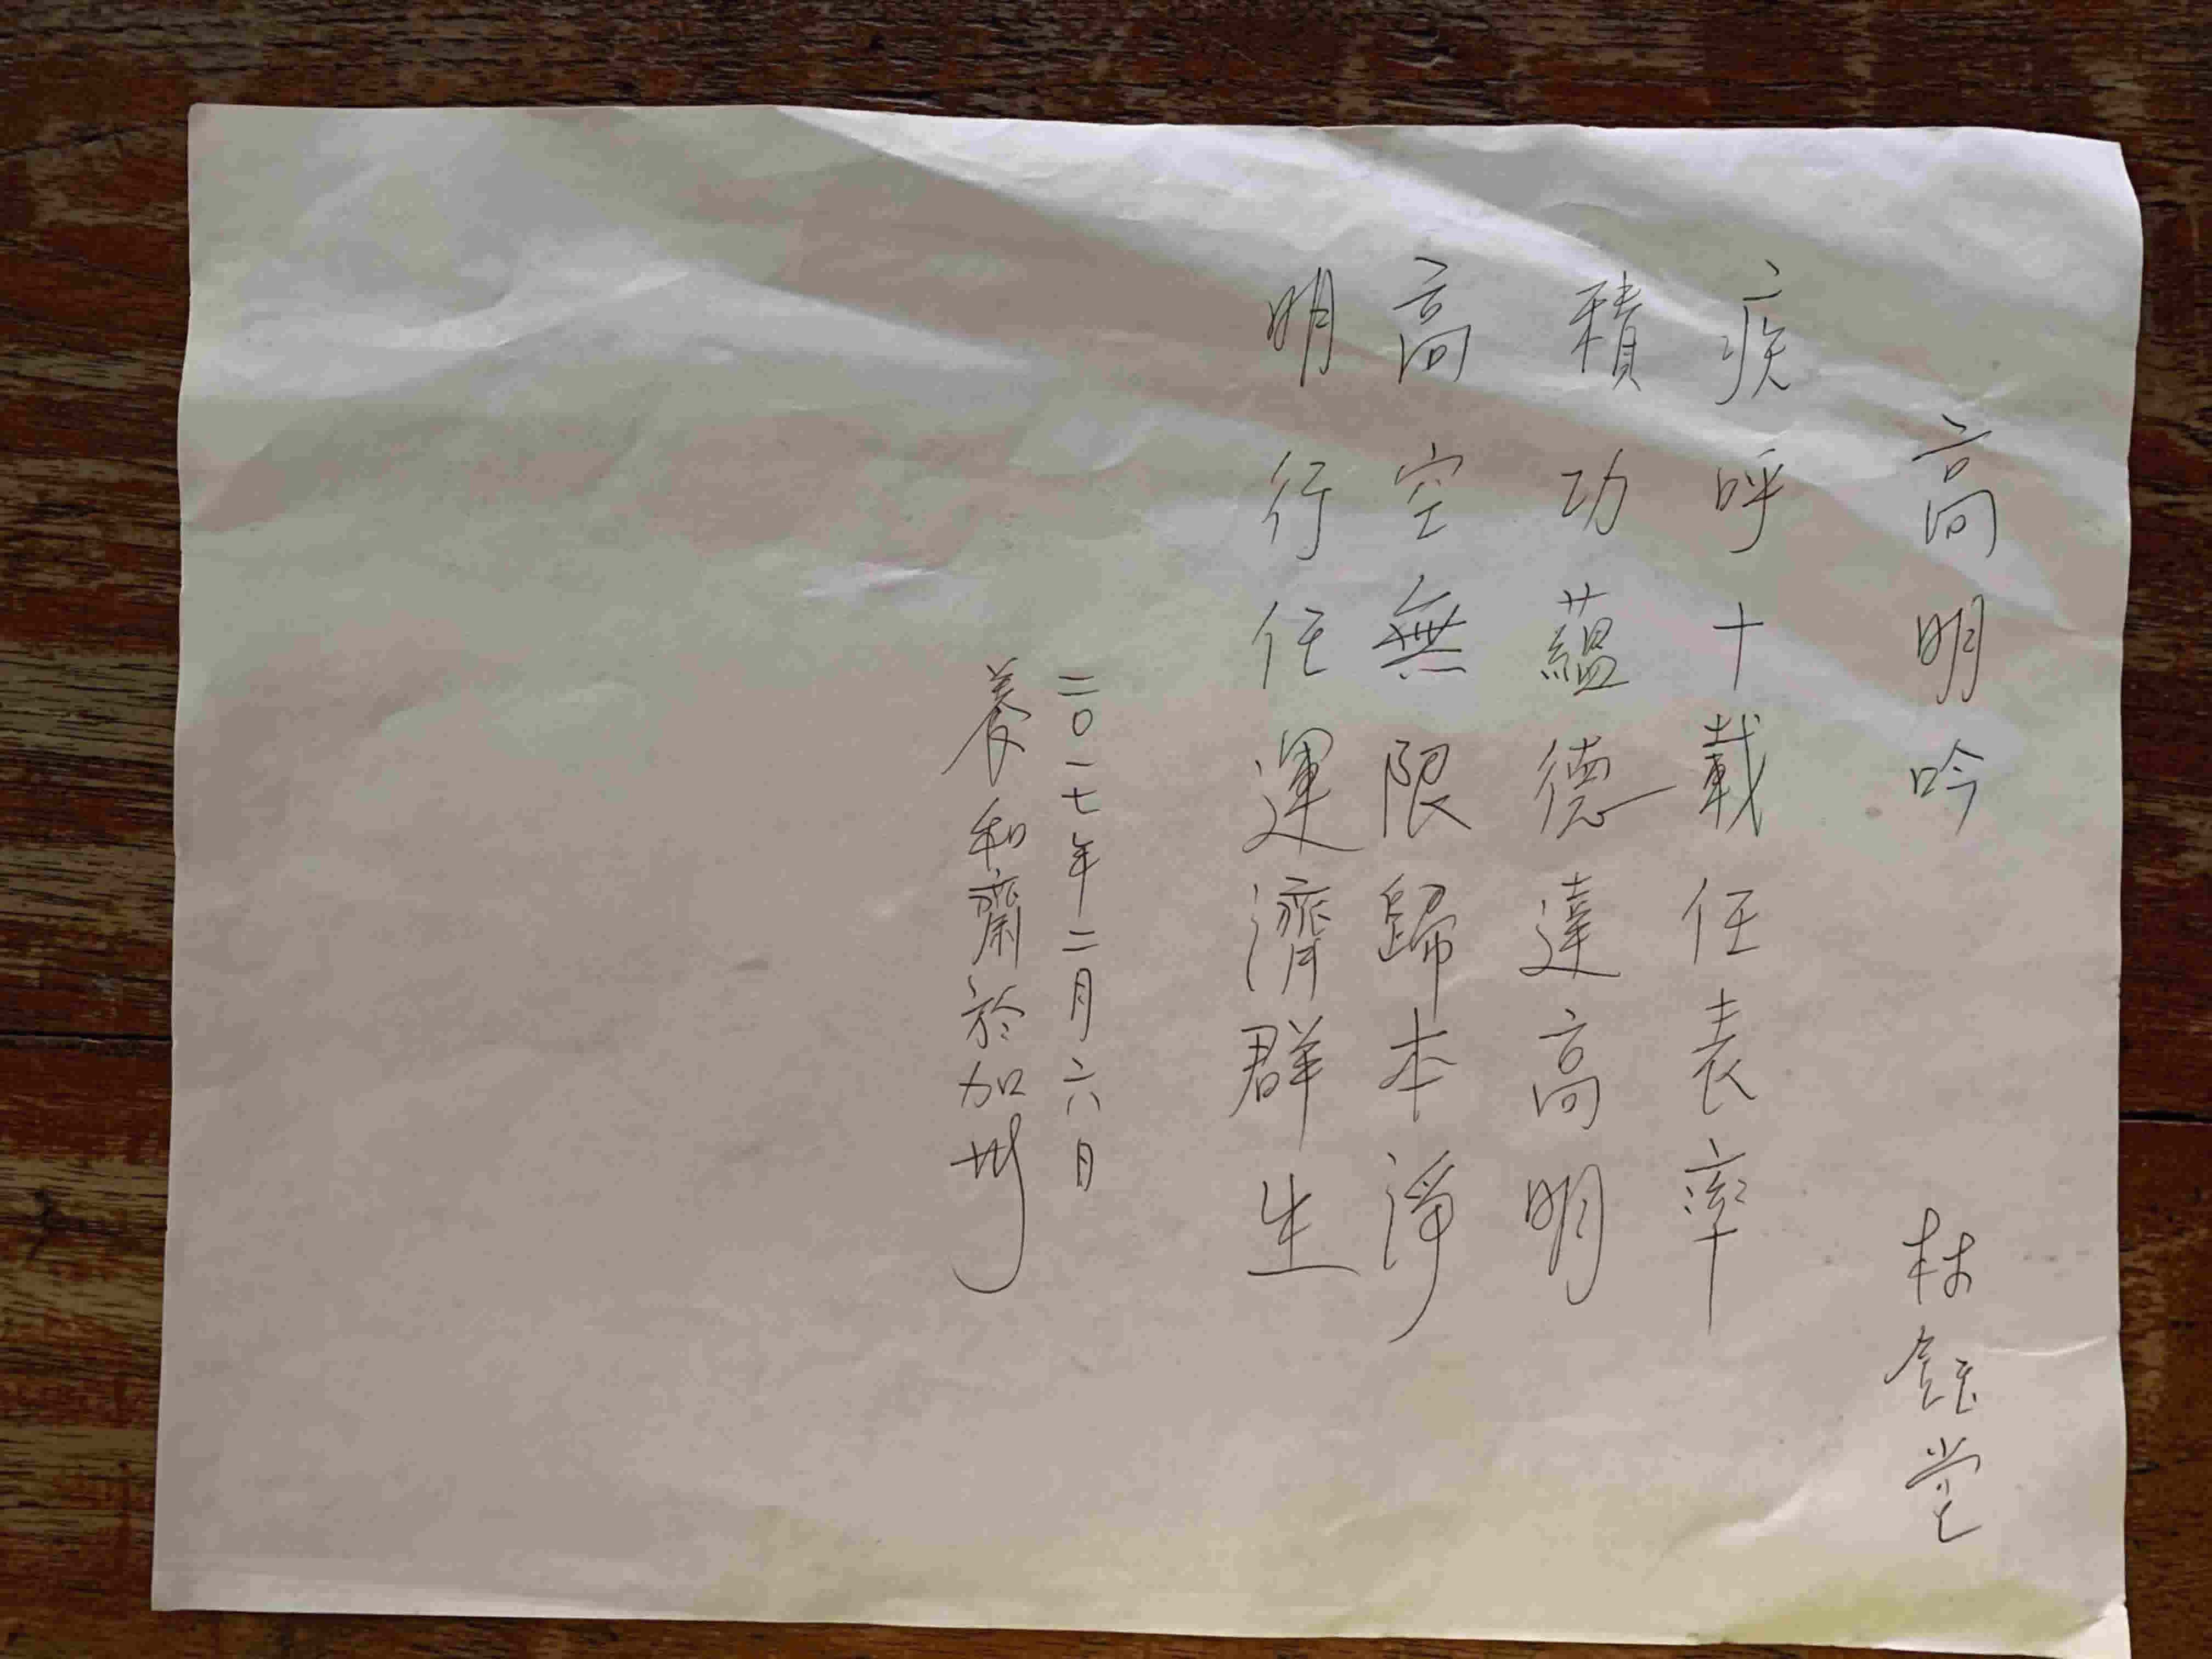 高明吟 林鈺堂
疾呼十載任表率
積功蘊德達高明
高空無限歸本淨
明行任運濟群生
二〇一七年二月六日
養和齋於加州